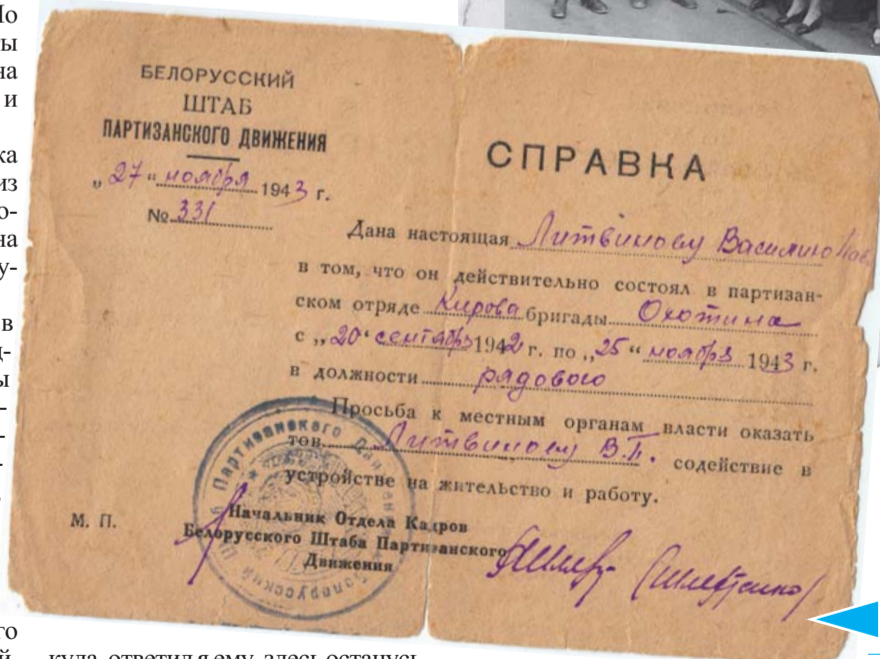 БЕЛОРУССКИЙ
ШТАБ
ПАРТИЗАНСКОГО ДВИЖЕНИЯ
„ 27 “ ноября 1943 г.
№ 331
СПРАВКА
Дана настоящая Литвинову Василию Пав.
в том, что он действительно состоял в партизан-
ском отряде Кирова бригады Охотина
с „20“ сентября 1942 г. по „25“ ноября 1943 г.
в должности рядового
Просьба к местным органам власти оказать
тов. Литвинову В.П. содействие в
устройстве на жительство и работу.
М. П.
Начальник Отдела Кадров
Белорусского Штаба Партизанского
Движения
куда, ответил я ему, здесь останусь